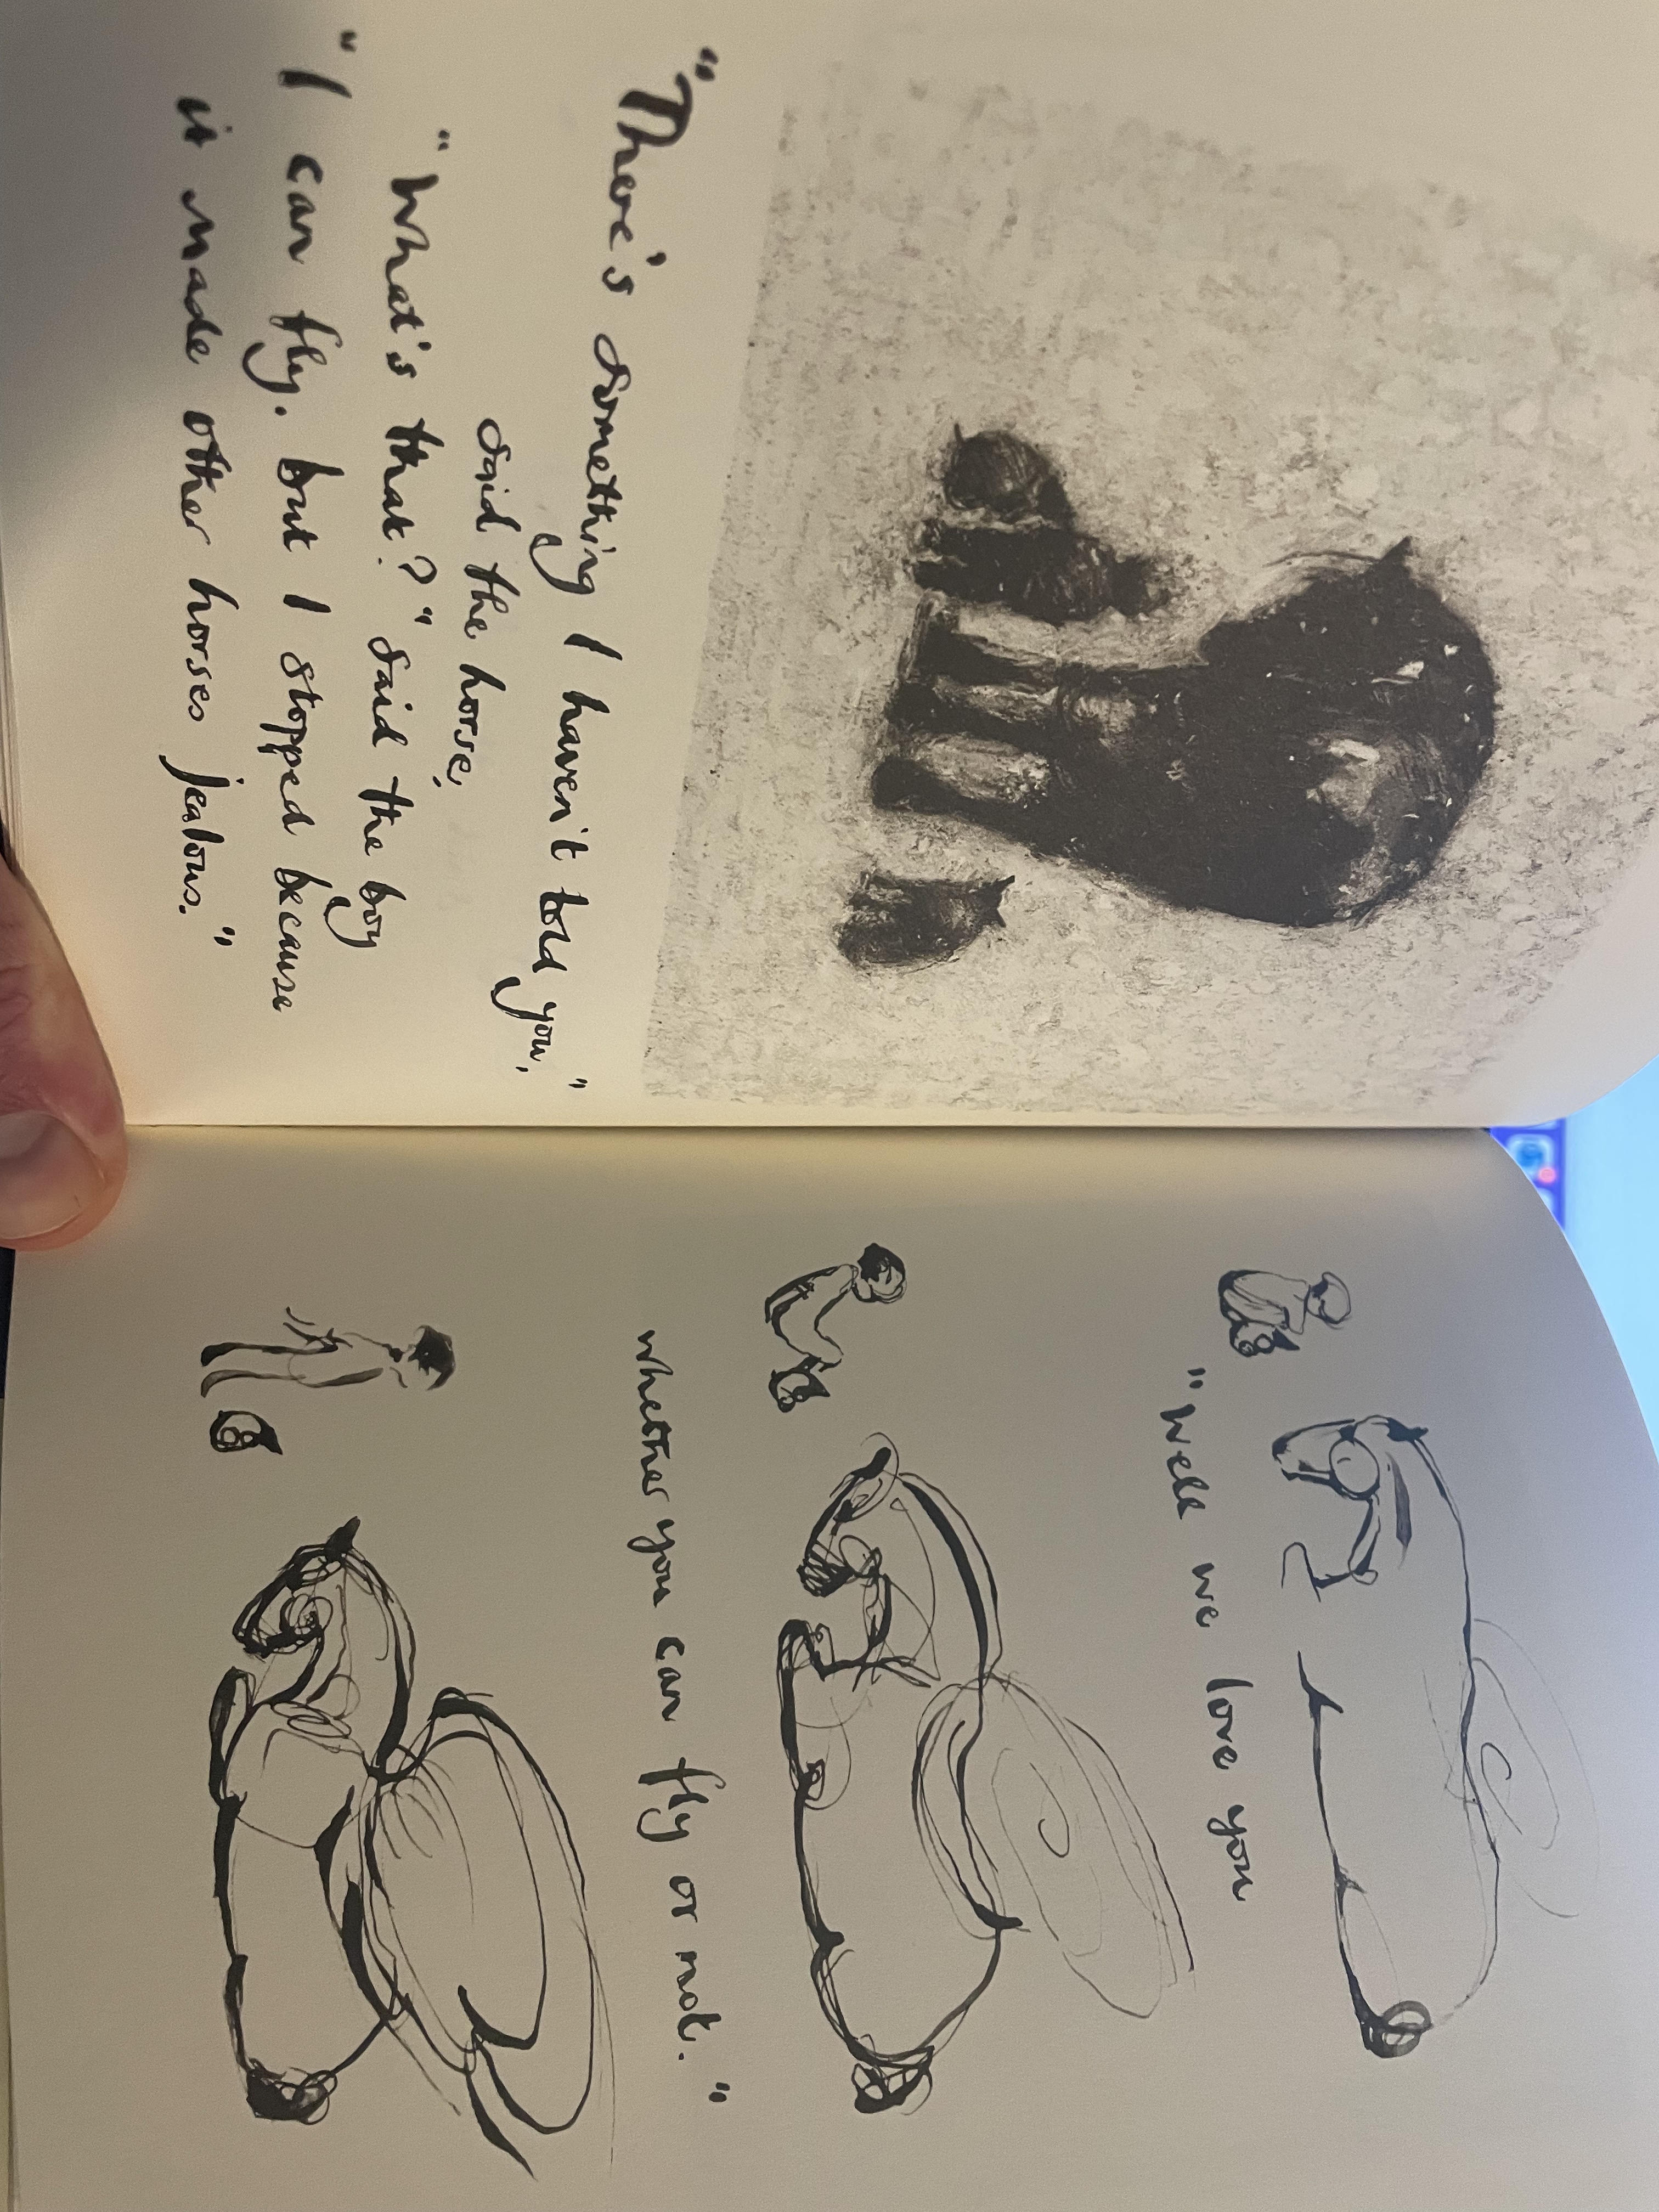 "There's something I haven't told you,"
said the horse,
"What's that?" said the boy
"I can fly. but I stopped because
it made other horses jealous."
"Well we love you
whether you can fly or not."